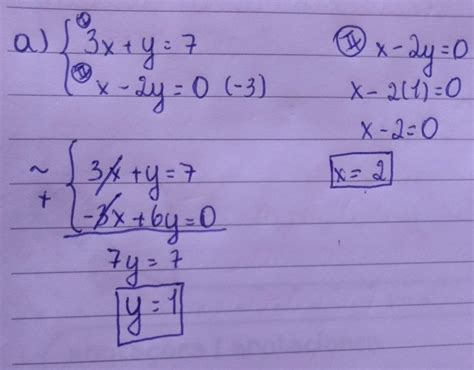 a) { Ⓘ 3x + y = 7
Ⓘ︎Ⓘ x - 2y = 0 (-3)
~ { 3x + y = 7
+ -3x + 6y = 0
7y = 7
y = 1
Ⓘ︎Ⓘ x - 2y = 0
x - 2(1) = 0
x - 2 = 0
x = 2